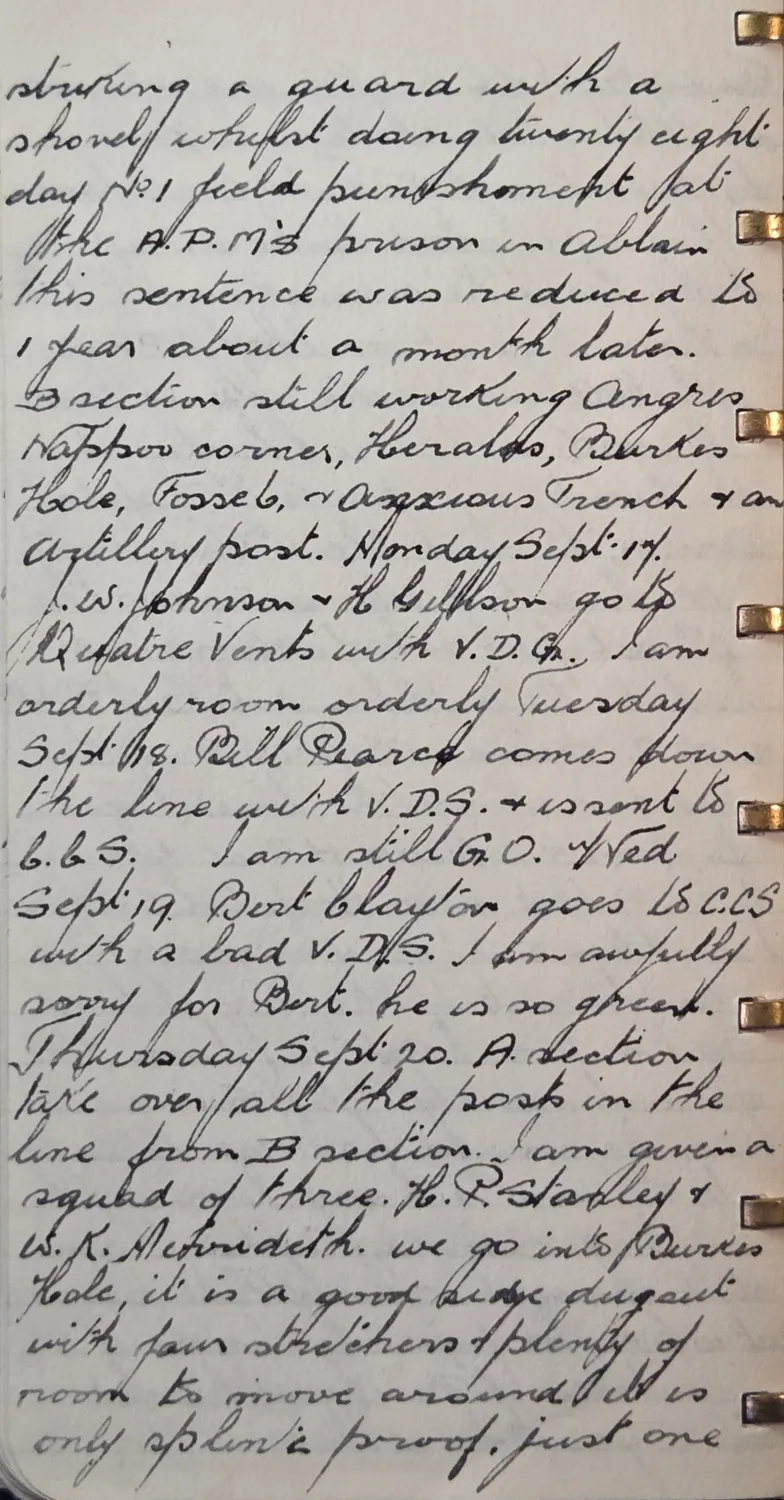 striking a guard with a
shovel whilst doing twenty eight
day No. 1 field punishment at
the A.P.M's prison in Ablain
this sentence was reduced to
1 year about a month later.
B section still working Angres
Nappoo corner, Heralds, Burkes
Hole, Fosse 6, & Anxious Trench & an
Artillery post. Monday Sept. 17.
J. W. Johnson & H go to
Quatre Vents with V.D.G. I am
orderly room orderly Tuesday
Sept 18. Bill Pearce comes down
the line with V.D.S. & is sent to
C.C.S. I am still G.O. Wed
Sept 19 Bert Clayton goes to C.C.S
with a bad V.D.S. I am awfully
sorry for Bert. he is so green.
Thursday Sept 20. A. section
take over all the posts in the
line from B section. I am given a
squad of three. H. P. Stanley &
W. K. Merrideth. we go into Burkes
Hole, it is a good dugout
with four stretchers & plenty of
room to move around it is
only splint proof. just one